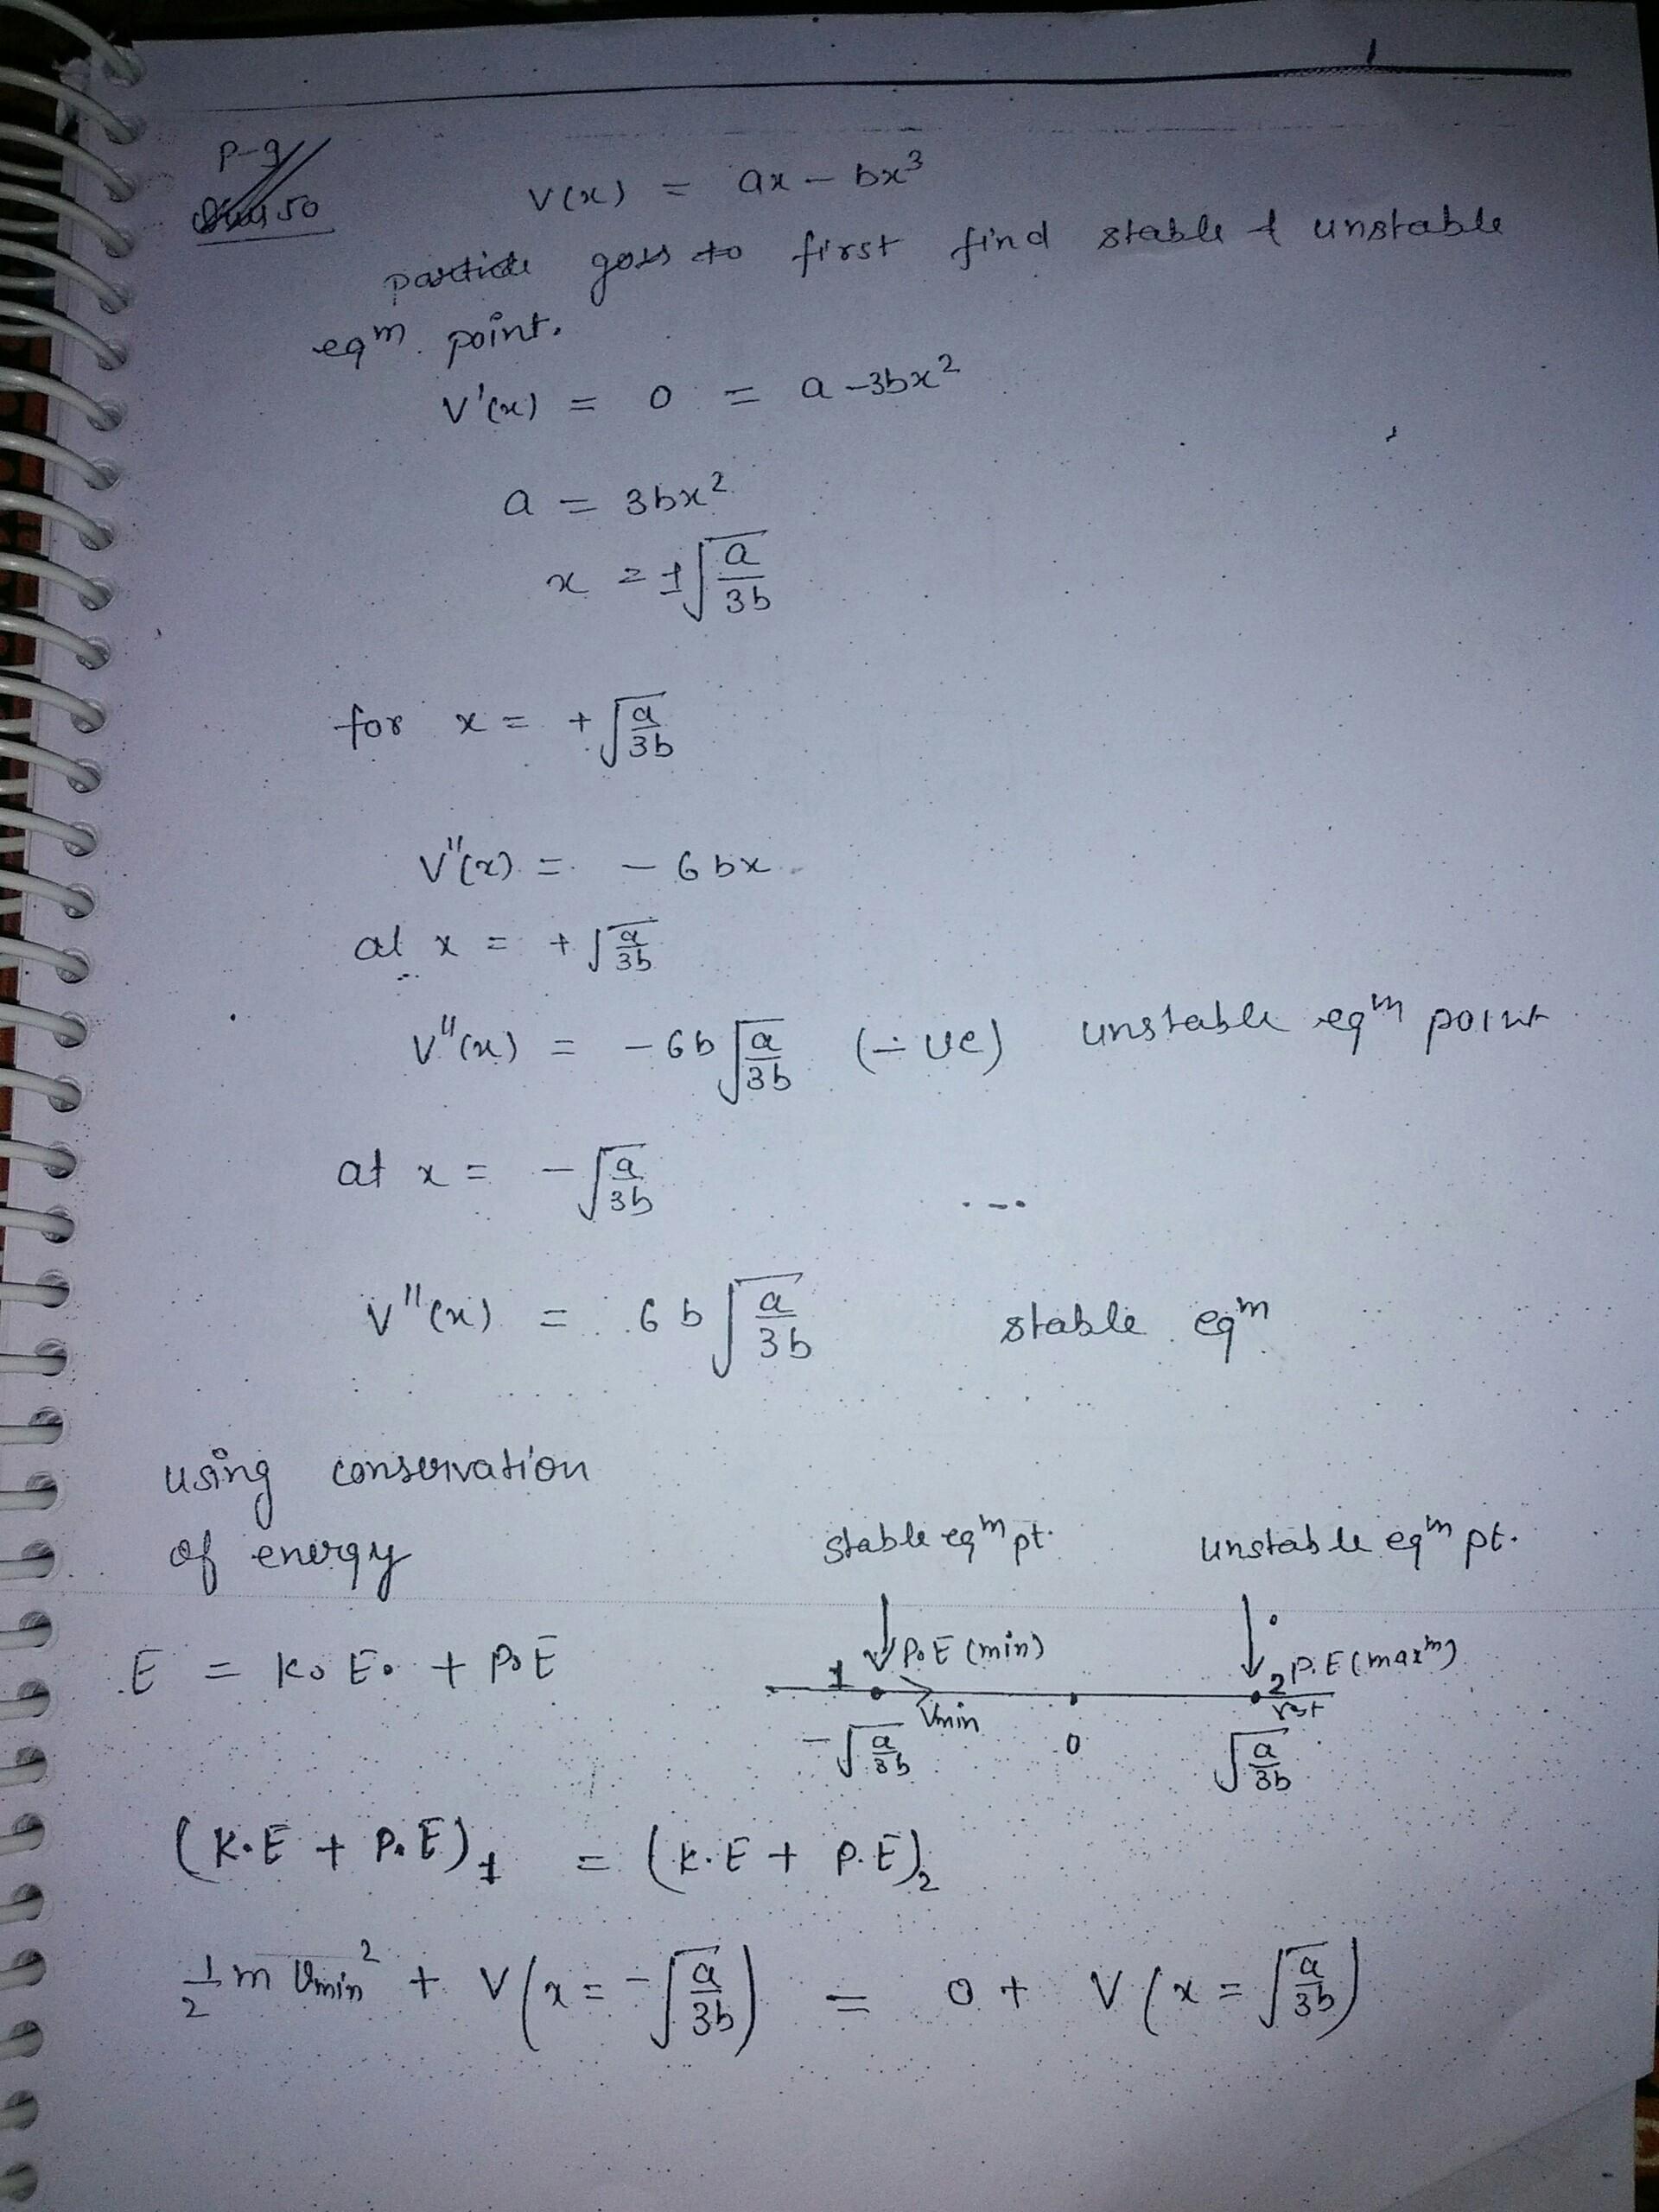 P-9
50
V(x) = ax - bx³
particle goes to first find stable & unstable
eqᵐ. point.
V'(x) = 0 = a - 3bx²
a = 3bx²
x = ±√(a/3b)
for x = +√(a/3b)
V''(x) = - 6bx
at x = +√(a/3b)
V''(x) = - 6b √(a/3b) (-ve) unstable eqᵐ point
at x = -√(a/3b)
V''(x) = 6b √(a/3b) stable eqᵐ
using conservation
of energy
stable eqᵐ pt. unstable eqᵐ pt.
E = K.E. + P.E
1 P.E (min) 2 P.E (maxᵐ)
Vmin rest
-√(a/3b) 0 √(a/3b)
(K.E + P.E)₁ = (K.E + P.E)₂
½ m Vmin² + V(x = -√(a/3b)) = 0 + V(x = √(a/3b))